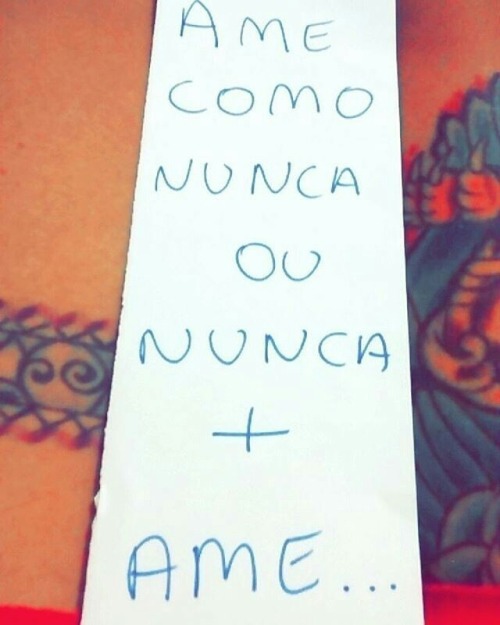 AME
COMO
NUNCA
OU
NUNCA
+
AME...